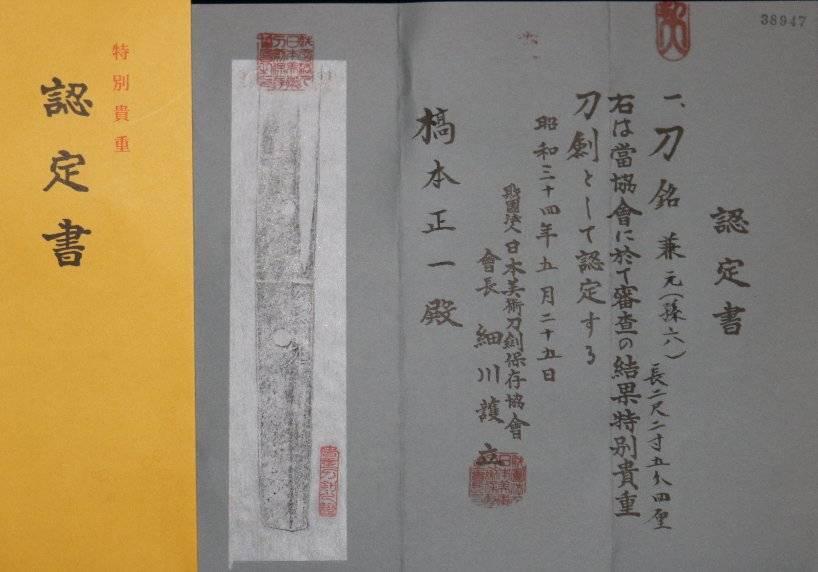 38947
認定書
一、刀 銘 兼元(孫六) 長二尺二寸五分四厘
右は當協會に於て審査の結果特別貴重
刀劍として認定する
昭和三十四年五月二十五日
財團法人日本美術刀劍保存協會
會長 細川護立
橋本正一殿
特別貴重
認定書